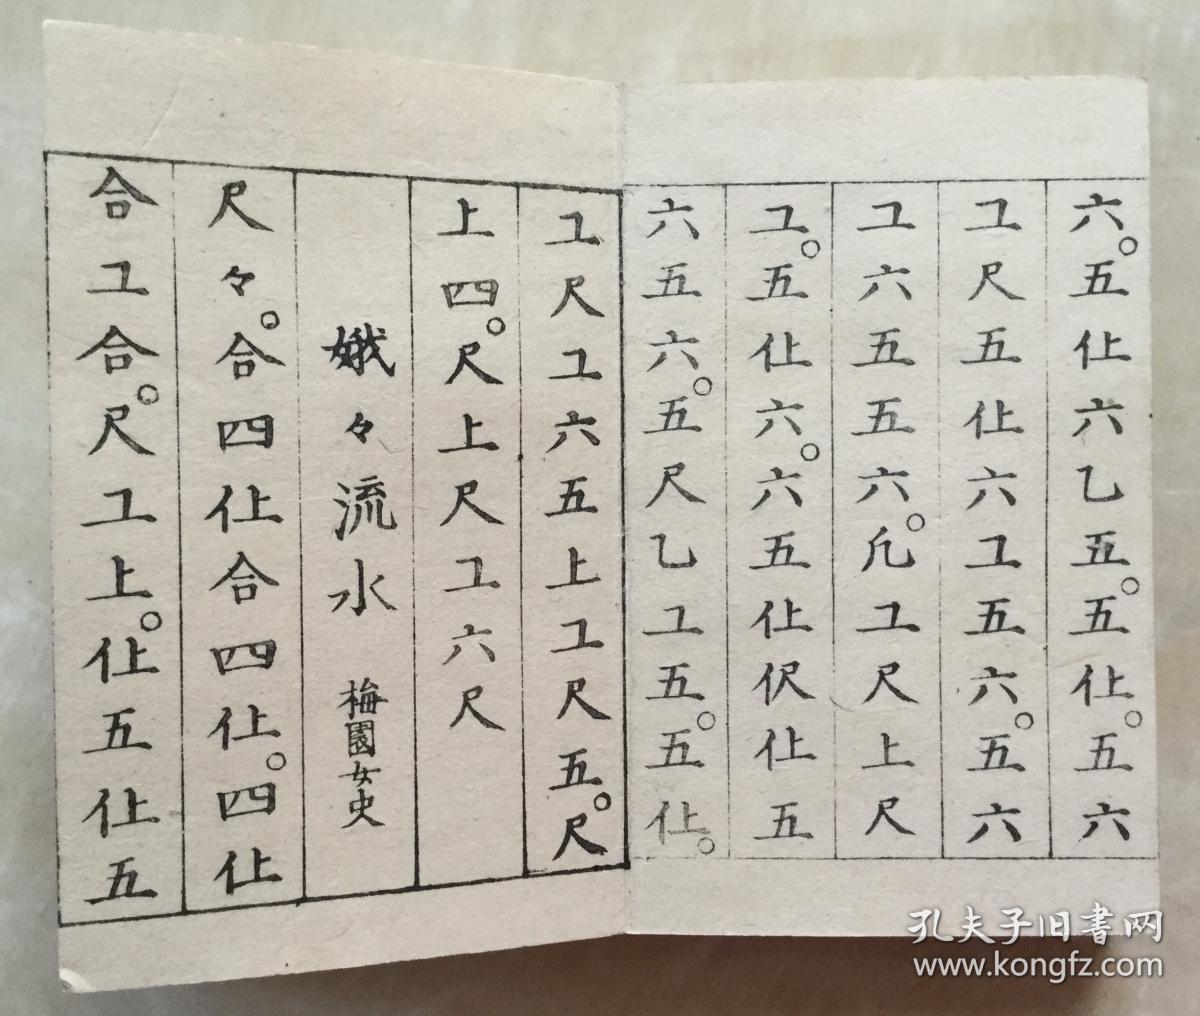 六。五仩六乙五。五仩。五六
工尺五仩六工五六。五六
工六五五六。凡工尺上尺
工。五仩六。六五仩伬仩五
六五六。五尺乙工五。五仩。
工尺工六五上工尺五。尺
上四。尺上尺工六尺
娥々流水 梅園女史
尺々。合四仩合四仩。四仩
合工合。尺工上。仩五仩五
孔夫子旧书网
www.kongfz.com